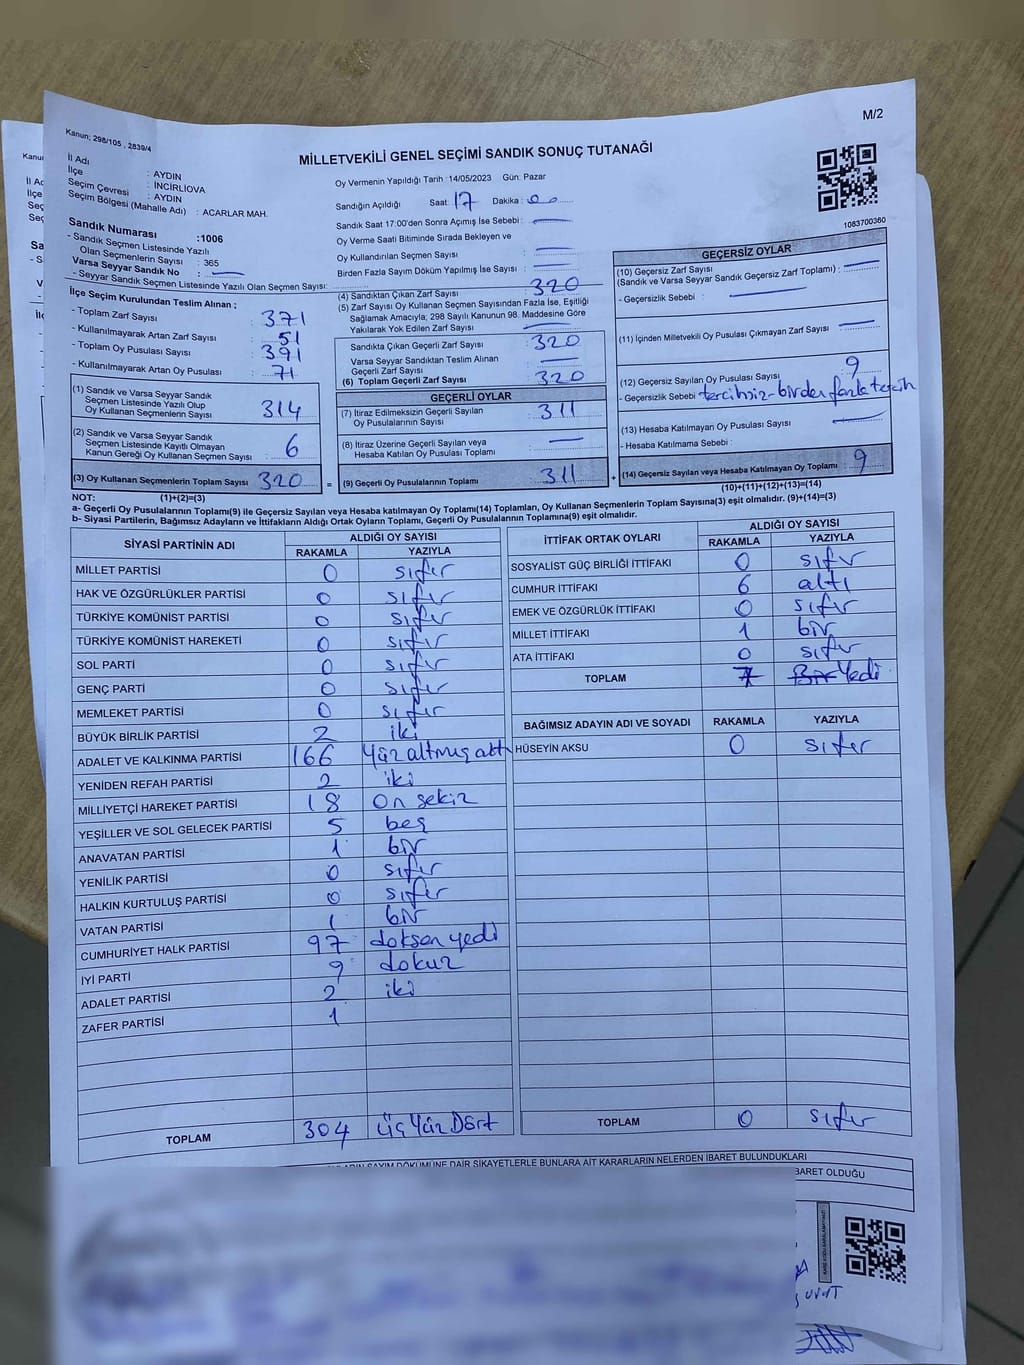 M/2
Kanun; 298/105 , 2839/4
MİLLETVEKİLİ GENEL SEÇİMİ SANDIK SONUÇ TUTANAĞI
İl Adı : AYDIN
İlçe : İNCİRLİOVA
Seçim Çevresi : AYDIN
Seçim Bölgesi (Mahalle Adı) : ACARLAR MAH.
Oy Vermenin Yapıldığı Tarih :14/05/2023 Gün: Pazar
Sandığın Açıldığı Saat: 17 Dakika: 00
Sandık Saat 17:00'den Sonra Açımış İse Sebebi :
Oy Verme Saati Bitiminde Sırada Bekleyen ve
Oy Kullandırılan Seçmen Sayısı :
Birden Fazla Sayım Döküm Yapılmış İse Sayısı :
1083700360
Sandık Numarası :1006
- Sandık Seçmen Listesinde Yazılı
Olan Seçmenlerin Sayısı : 365
Varsa Seyyar Sandık No :
- Seyyar Sandık Seçmen Listesinde Yazılı Olan Seçmen Sayısı:
İlçe Seçim Kurulundan Teslim Alınan ;
- Toplam Zarf Sayısı : 371
- Kullanılmayarak Artan Zarf Sayısı : 51
- Toplam Oy Pusulası Sayısı : 391
- Kullanılmayarak Artan Oy Pusulası : 71
(1) Sandık ve Varsa Seyyar Sandık
Seçmen Listesinde Yazılı Olup
Oy Kullanan Seçmenlerin Sayısı : 314
(2) Sandık ve Varsa Seyyar Sandık
Seçmen Listesinde Kayıtlı Olmayan
Kanun Gereği Oy Kullanan Seçmen Sayısı : 6
(3) Oy Kullanan Seçmenlerin Toplam Sayısı : 320
(4) Sandıktan Çıkan Zarf Sayısı : 320
(5) Zarf Sayısı Oy Kullanan Seçmen Sayısından Fazla İse, Eşitliği
Sağlamak Amacıyla; 298 Sayılı Kanunun 98. Maddesine Göre
Yakılarak Yok Edilen Zarf Sayısı :
Sandıkta Çıkan Geçerli Zarf Sayısı : 320
Varsa Seyyar Sandıktan Teslim Alınan
Geçerli Zarf Sayısı :
(6) Toplam Geçerli Zarf Sayısı : 320
GEÇERLİ OYLAR
(7) İtiraz Edilmeksizin Geçerli Sayılan
Oy Pusulalarının Sayısı : 311
(8) İtiraz Üzerine Geçerli Sayılan veya
Hesaba Katılan Oy Pusulası Toplamı :
= (9) Geçerli Oy Pusulalarının Toplamı : 311 +
GEÇERSİZ OYLAR
(10) Geçersiz Zarf Sayısı :
(Sandık ve Varsa Seyyar Sandık Geçersiz Zarf Toplamı) :
- Geçersizlik Sebebi :
(11) İçinden Milletvekili Oy Pusulası Çıkmayan Zarf Sayısı :
(12) Geçersiz Sayılan Oy Pusulası Sayısı : 9
- Geçersizlik Sebebi tercihsiz-birden fazla tercih
(13) Hesaba Katılmayan Oy Pusulası Sayısı :
- Hesaba Katılmama Sebebi :
(14) Geçersiz Sayılan veya Hesaba Katılmayan Oy Toplamı : 9
NOT: (1)+(2)=(3)
(10)+(11)+(12)+(13)=(14)
a- Geçerli Oy Pusulalarının Toplamı(9) ile Geçersiz Sayılan veya Hesaba katılmayan Oy Toplamı(14) Toplamları, Oy Kullanan Seçmenlerin Toplam Sayısına(3) eşit olmalıdır. (9)+(14)=(3)
b- Siyasi Partilerin, Bağımsız Adayların ve İttifakların Aldığı Ortak Oyların Toplamı, Geçerli Oy Pusulalarının Toplamına(9) eşit olmalıdır.
SİYASİ PARTİNİN ADI ALDIĞI OY SAYISI
RAKAMLA YAZIYLA
MİLLET PARTİSİ 0 sıfır
HAK VE ÖZGÜRLÜKLER PARTİSİ 0 sıfır
TÜRKİYE KOMÜNİST PARTİSİ 0 sıfır
TÜRKİYE KOMÜNİST HAREKETİ 0 sıfır
SOL PARTİ 0 sıfır
GENÇ PARTİ 0 sıfır
MEMLEKET PARTİSİ 0 sıfır
BÜYÜK BİRLİK PARTİSİ 2 iki
ADALET VE KALKINMA PARTİSİ 166 Yüz altmış altı
YENİDEN REFAH PARTİSİ 2 iki
MİLLİYETÇİ HAREKET PARTİSİ 18 on sekiz
YEŞİLLER VE SOL GELECEK PARTİSİ 5 beş
ANAVATAN PARTİSİ 1 bir
YENİLİK PARTİSİ 0 sıfır
HALKIN KURTULUŞ PARTİSİ 0 sıfır
VATAN PARTİSİ 1 bir
CUMHURİYET HALK PARTİSİ 97 doksan yedi
İYİ PARTİ 9 dokuz
ADALET PARTİSİ 2 iki
ZAFER PARTİSİ 1
TOPLAM 304 Üç Yüz Dört
İTTİFAK ORTAK OYLARI ALDIĞI OY SAYISI
RAKAMLA YAZIYLA
SOSYALİST GÜÇ BİRLİĞİ İTTİFAKI 0 sıfır
CUMHUR İTTİFAKI 6 altı
EMEK VE ÖZGÜRLÜK İTTİFAKI 0 sıfır
MİLLET İTTİFAKI 1 bir
ATA İTTİFAKI 0 sıfır
TOPLAM 7 Bir Yedi
BAĞIMSIZ ADAYIN ADI VE SOYADI RAKAMLA YAZIYLA
HÜSEYİN AKSU 0 sıfır
TOPLAM 0 sıfır
SAYIM DÖKÜMÜNE DAİR ŞİKAYETLERLE BUNLARA AİT KARARLARIN NELERDEN İBARET BULUNDUKLARI
BARET OLDUĞU